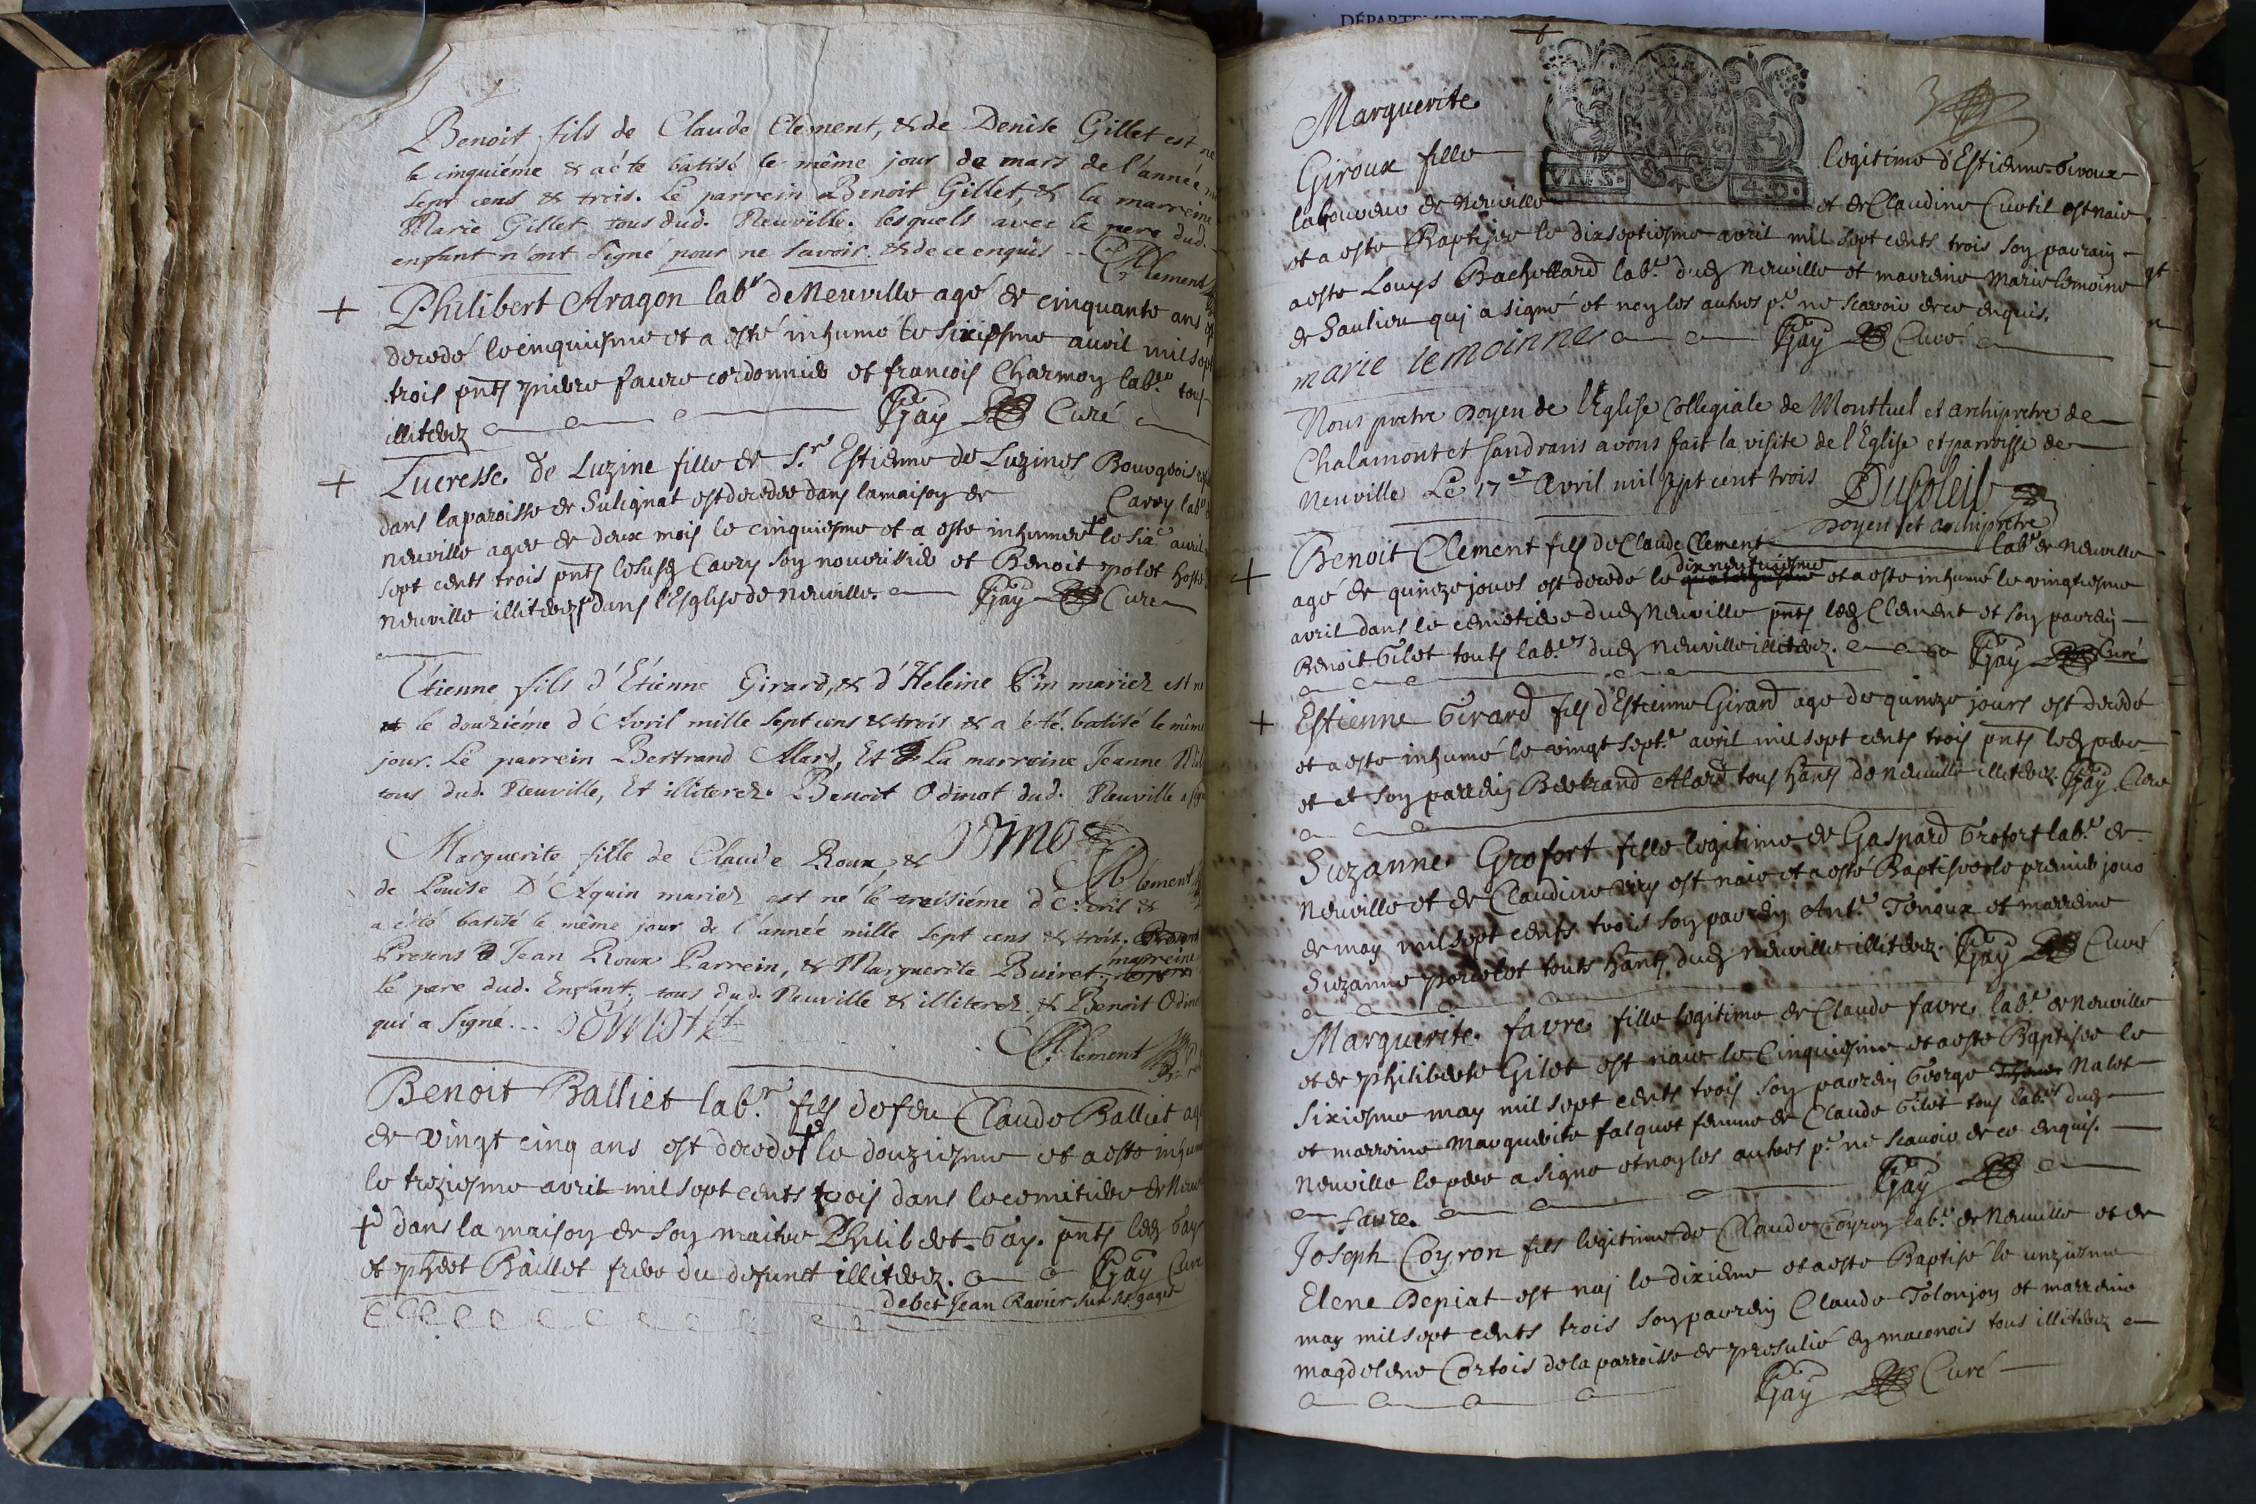 Benoit fils de Claude Clement, & de Denise Gillet est né
le cinquiéme & a été batisé le même jour de mars de l'année
sept cens & trois. Le parrein Benoit Gillet, & la marreine
Marie Gillet tous dud. Neuville. lesquels avec le pere dud.
enfant n'ont signé pour ne savoir. & de ce enquis --- Clement
Philibert Aragon lab.r de Neuville agé de cinquante ans
decedé le cinquiesme et a esté inhumé le sixiesme avril mil sept
trois pnts pierre faure cordonnier et francois Charmoy lab.r tous
illiterez Gay Curé
Lucresse de Luzine fille de S.r Estienne de Luzines Bourgeois
dans la paroisse de Sulignat est decedee dans la maison de Carry lab.r
neuville agee de deux mois le cinquiesme et a este inhumee le six.e avril
sept cents trois pnts lesusd Carry son nourissier et Benoit polet
neuville illiterez dans l'Esglise de neuville. Gay Cure
Etienne fils d'Etienne Girard, & d'Heleine Pin mariez est né
le douziéme d'Avril mille sept cens & trois & a été batisé le même
jour. Le parrein Bertrand Alard, Et La marreine Jeanne
tous dud. Neuville, Et illiterez. Benoit Odinot dud. Neuville a signé
Marguerite fille de Claude Roux, &
Clement
de Louise D'Aquin mariez est né le treisiéme d'Avril &
a été batisé le même jour de l'année mille sept cens & trois.
Presens Jean Roux Parrein, & Marguerite Buiret, marreine
Le pere dud. Enfant, tous dud. Neuville & illiterez. & Benoit
qui a signé...
Clement
Benoit Balliet lab.r fils de feu Claude Balliet agé
de vingt cinq ans est decedé + le douziesme et a esté inhumé
le treziesme avril mil sept cents trois dans le cemitiere de
+ dans la maison de son maitre Philibert Gay. pnts led Gay
et phbert Baillet frere du defunct illiterez. Gay Curé
debet Jean Ravier sur ses gages
Marguerite
Giroux fille legitime d'Estienne Giroux
VNS. 4D.
laboureur de neuville et de Claudine Curtil est naie
et a este Baptisee le dixseptiesme avril mil sept cents trois son parrain
a este Louys Bachellard lab.r dud neuville et marreine Marie lemoine
de Saulieu qui a signé et non les autres p.r ne scavoir de ce enquis.
marie lemoinne Gay Curé
Nous pretre Doyen de l'Eglise Collegiale de Montluel et archipretre de
Chalamont et sandrans avons fait la visite de l'Eglise et parroisse de
Neuville Le 17.e Avril mil sept cent trois Dusoleil
Doyen et archipretre
Benoit Clement fils de Claude Clement lab.r de neuville
dix neufviesme
agé de quinze jours est decedé le quatorziesme et a este inhumé le vingtiesme
avril dans le cemetiere dud neuville pnts led Clement et son parrein
Benoit Gilet touts lab.rs dud neuville illiterez. Gay Curé
Estienne Girard fils d'Estienne Girard age de quinze jours est decedé
et a este inhumé le vingt sept.e avril mil sept cents trois pnts led pere
et et son parrein Bertrand Alard tous hants de neuville illiterez Gay Cure
Suzanne Grofort fille legitime de Gaspard Grofort lab.r de
neuville et de Claudine est naie et a esté Baptisee le premier jour
de may mil sept cents trois son parrein Ant.e Tenoux et marreine
Suzanne poncetot touts hants dud neuville illiterez. Gay Curé
Marguerite favre fille legitime de Claude favre lab.r de neuville
et de philiberte Gilet est naie le cinquiesme et a este Baptisee le
sixiesme may mil sept cents trois son parrein George Nalet
et marreine Marguerite falquet femme de Claude Gilet tous lab.rs dud
neuville le pere a signe et non les autres p.r ne scavoir de ce enquis.
faure. Gay
Joseph Coyron fils legitime de Claude Coyron lab.r de Neuville et de
Elene Depiat est nai le dixieme et a este Baptisé le unziesme
may mil sept cents trois son parrein Claude Tolonjon et marreine
magdelene Cortois de la parroisse de en maconois tous illiterez
Gay Curé